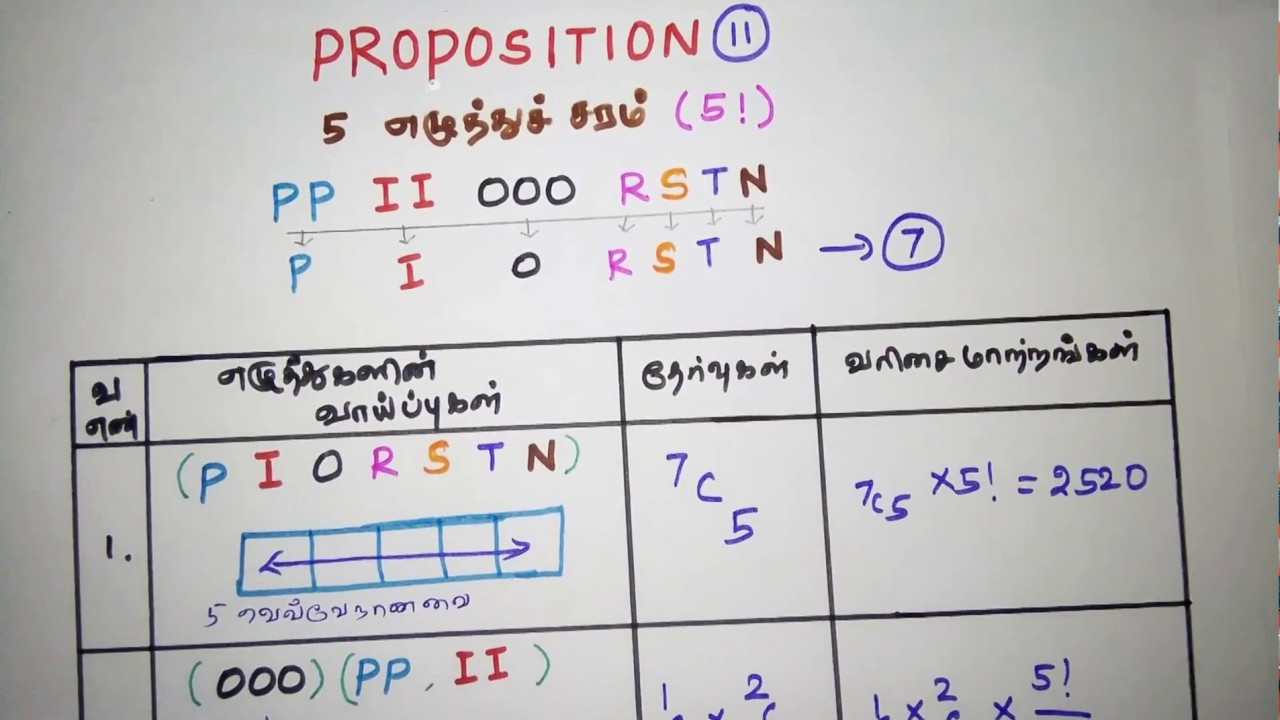 PROPOSITION 11
5 எழுத்துச் சரம் (5!)
PP II OOO R S T N
P I O R S T N → 7
வ எண்
எழுத்துகளின் வாய்ப்புகள்
தேர்வுகள்
வரிசை மாற்றங்கள்
1.
(P I O R S T N)
5 வெவ்வேறானவை
7C5
7C5 × 5! = 2520
(OOO) (PP, II)
1 × 2
1 × 2 × 5!